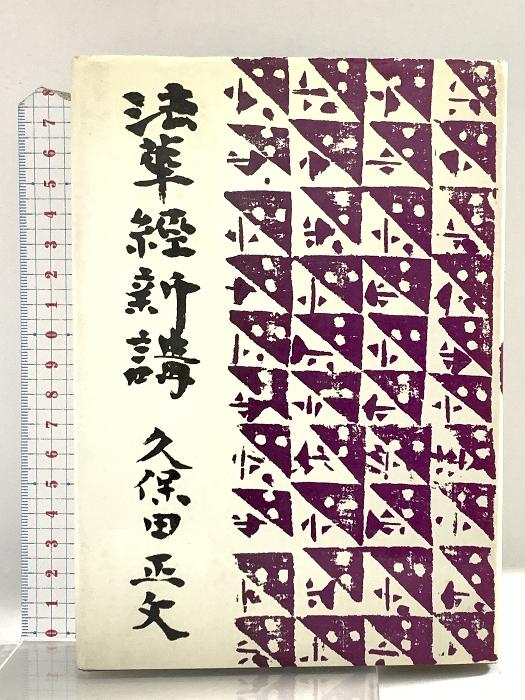 法華經新講
久保田正文